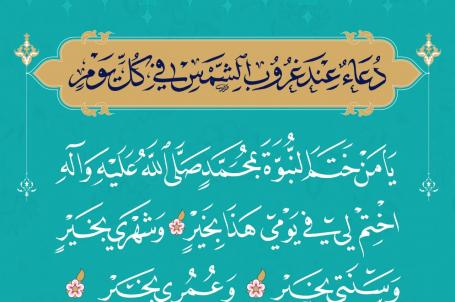 دُعَاءٌ عِنْدَ غُرُوبِ الشَّمْسِ فِي كُلِّ يَوْمٍ
يَا مَنْ خَتَمَ النُّبُوَّةَ بِمُحَمَّدٍ صَلَّى اللّٰهُ عَلَيْهِ وَآلِهِ
اخْتِمْ لِي فِي يَوْمِي هَذَا بِخَيْرٍ وَشَهْرِي بِخَيْرٍ
وَسَنَتِي بِخَيْرٍ وَعُمُرِي بِخَيْرٍ